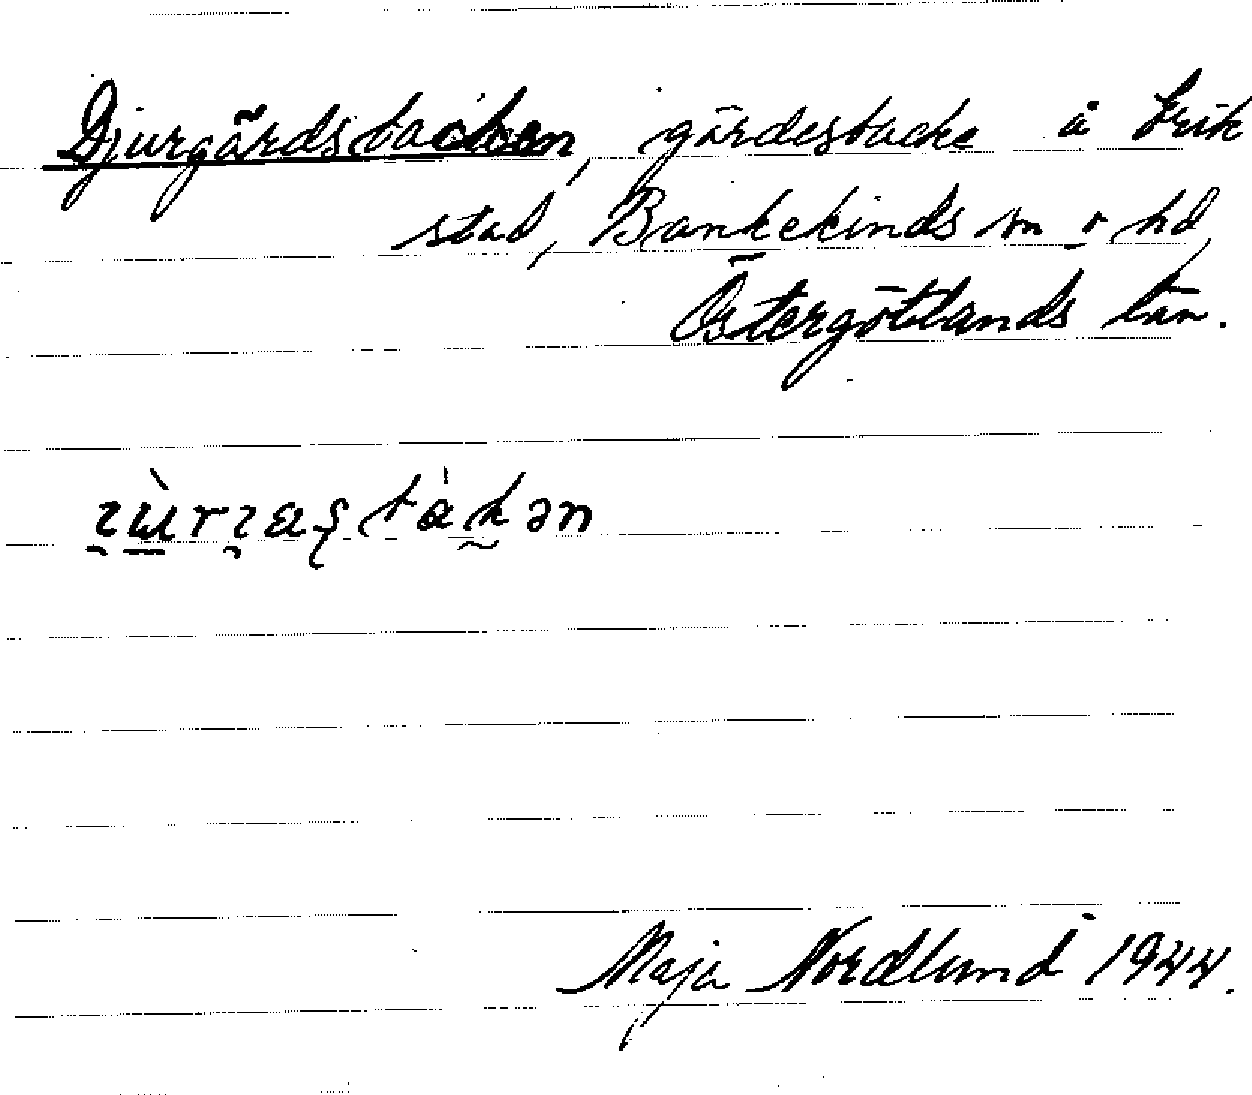 Djurgårdsbacken, gärdesbacke å Erik
stad, Bankekinds sn o hd,
Östergötlands län.
Maja Nordlund 1944.